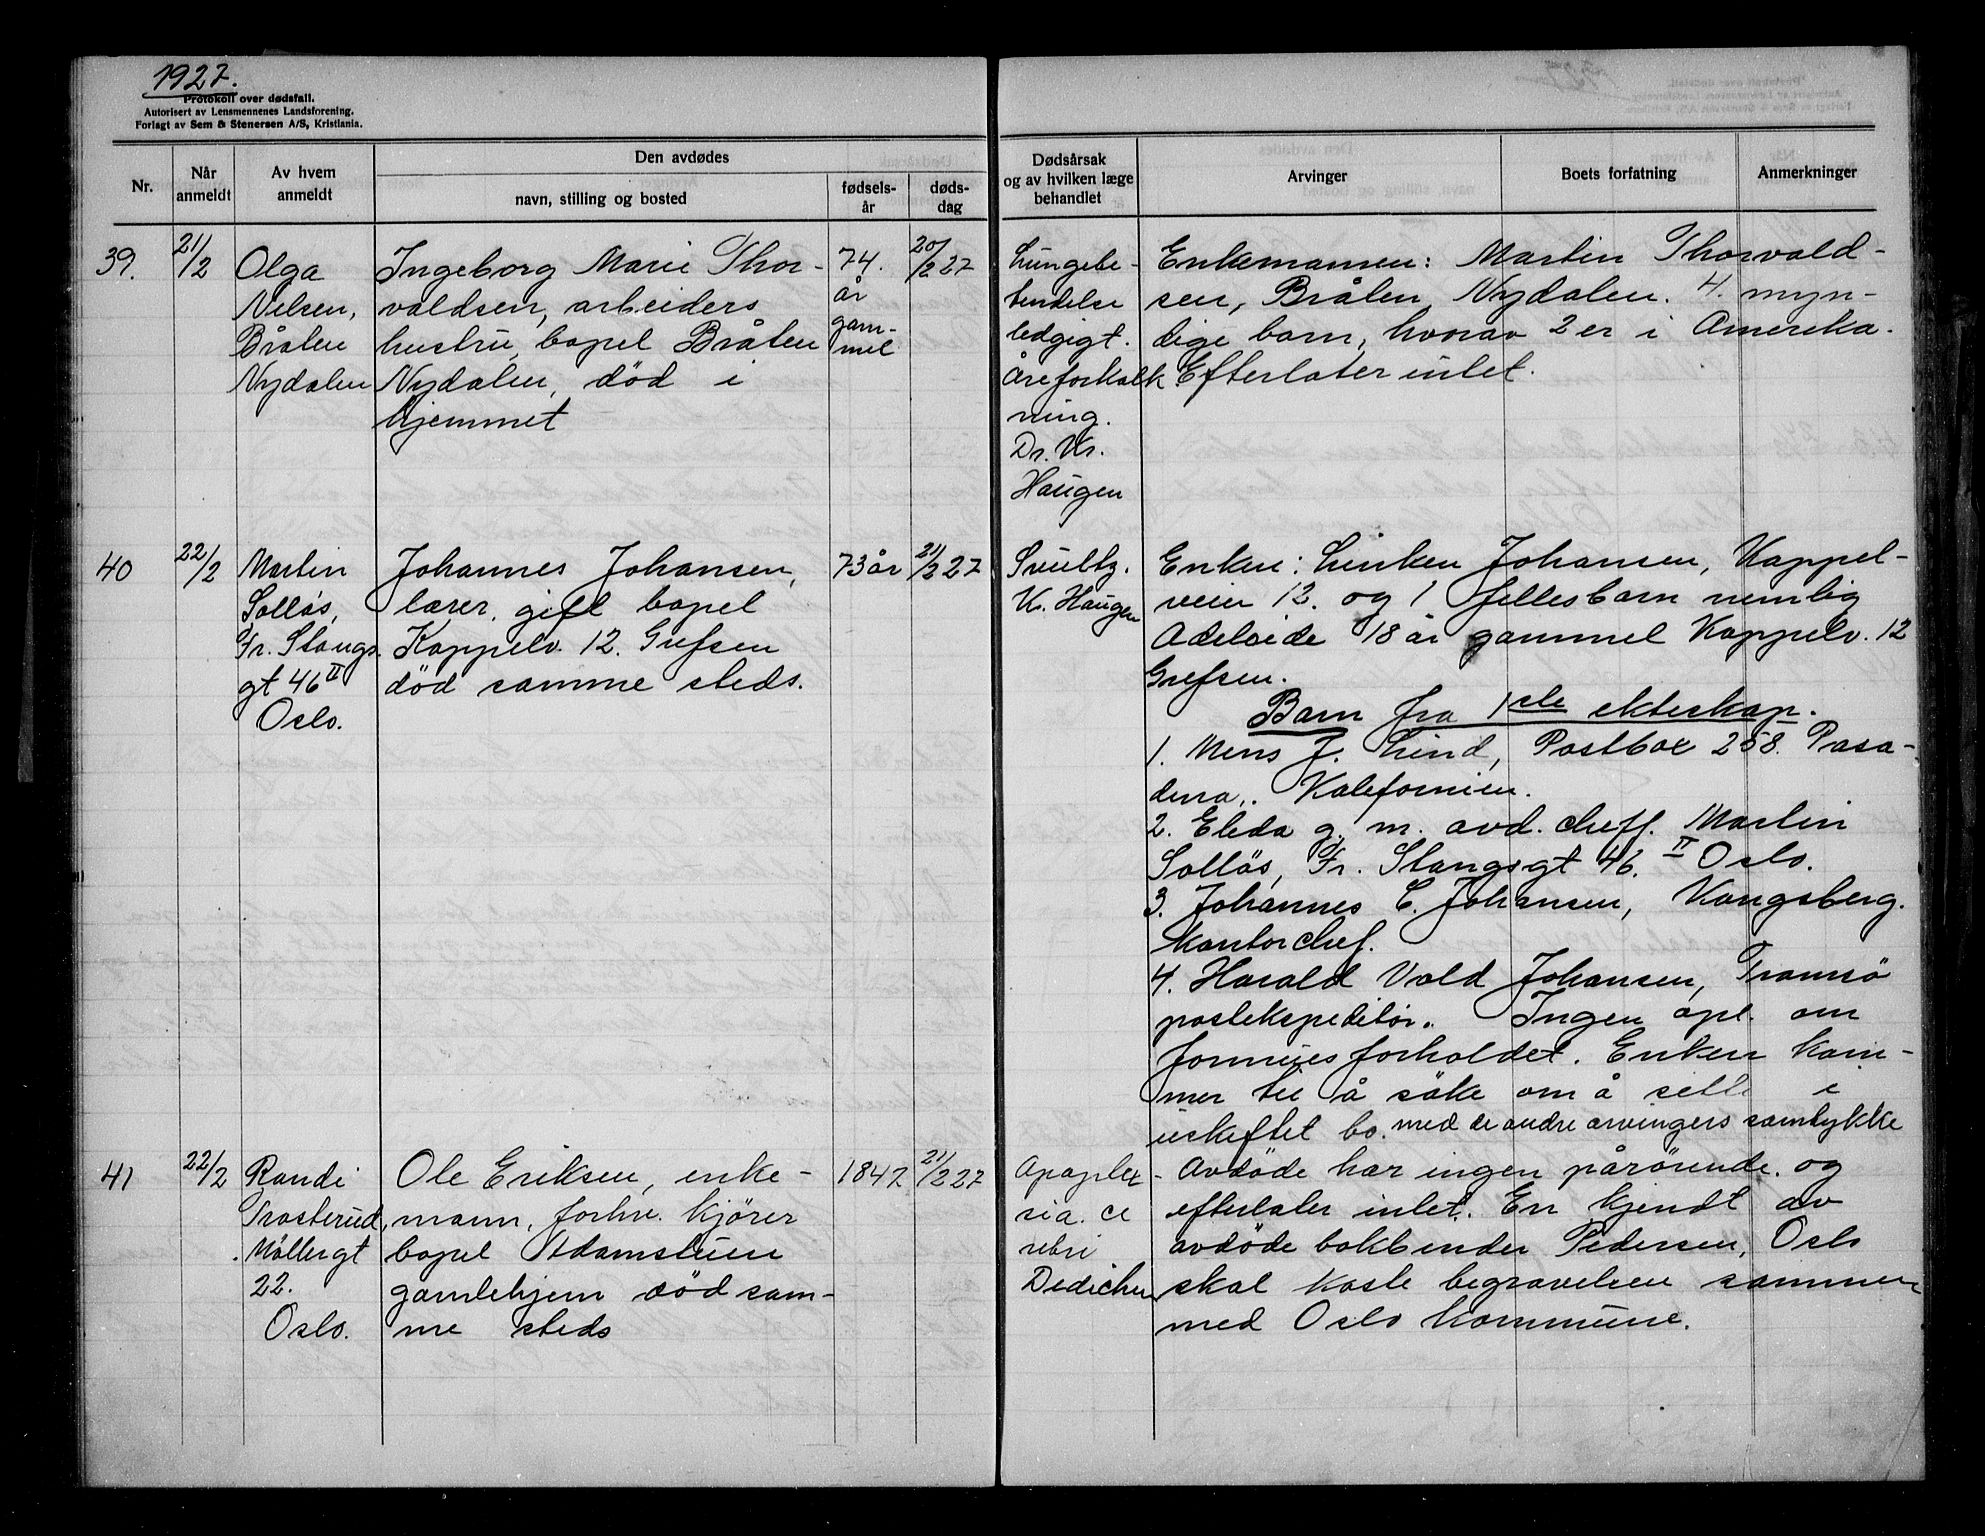 1927.
Protokoll over dødsfall.
Autorisert av Lensmennenes Landsforening.
Forlagt av Sem & Stenersen A/S, Kristiania.
Nr.
Når anmeldt
Av hvem anmeldt
Den avdødes
navn, stilling og bosted
fødsels-år
døds-dag
Dødsårsak og av hvilken læge behandlet
Arvinger
Boets forfatning
Anmerkninger
39.
21/2
Olga
Nelsen,
Bråten
Nydalen
Ingeborg Marie Thor-
valdsen, arbeiders
hustru, bopel Bråten
Nydalen, død i
hjemmet
74.
år
gam-
mel
20/2 27
Lungebe-
tendelse
ledgigt.
Åreforkalk
ning.
Dr. Kr.
Haugen
Enkemannen: Martin Thorvald-
sen, Bråten, Nydalen. 4. myn-
dige barn, hvorav 2 er i Amerika.
Efterlater intet.
40
22/2
Martin
Solløs,
Fr. Stangs
gt 46 II
Oslo.
Johannes Johansen,
lærer, gift bopel
Kappelv. 12. Grefsen
død samme steds.
73 år
21/2 27
Svulty.
Kr. Haugen
Enken: Linken Johansen, Kappel-
veien 12. og 1 fellesbarn nemlig
Adeleide 18 år gammel Kappelv. 12
Grefsen.
Barn fra 1ste ekteskap.
1. Mens J. Lind, Postbox 258. Pasa-
dena,. Kalefornien.
2. Elida g. m. avd. cheff. Martin
Solløs, Fr. Stangsgt 46. II Oslo.
3. Johannes C. Johansen, Kongsberg.
kontorchef.
4. Harald Vold Johansen, Tromsö
postekspeditör. Ingen opl. om
formuesforholdet. Enken kom-
mer til å söke om å sitte i
uskiftet bo. med de andre arvingers samtykke
41
22/2
Randi
Trosterud,
Möllergt
22.
Oslo.
Ole Eriksen, enke-
mann, forhv. kjører
bopel Adamstuen
gamlehjem død sam-
me steds
1847
21/2 27
Apoplex-
sia. ce
rebri
Dedichen
Avdøde har ingen pårørende. og
efterlater intet. En kjendt av
avdøde bokbinder Pedersen, Oslo
skal koste begravelsen sammen
med Oslo kommune.